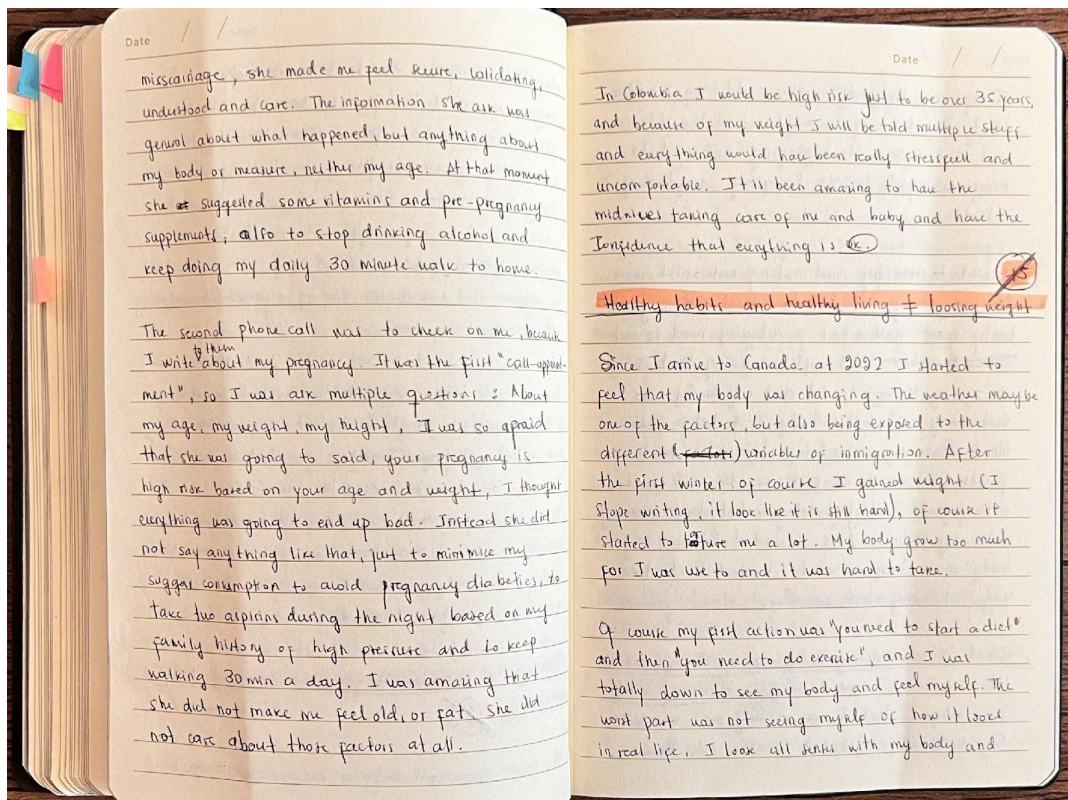 Date / /
misscarriage, she made me feel secure, validating,
understood and care. The information she ask was
general about what happened, but anything about
my body or measure, neither my age. At that moment
she suggested some vitamins and pre-pregnancy
supplements, also to stop drinking alcohol and
keep doing my daily 30 minute walk to home.
The second phone call was to check on me, because
to them
I write about my pregnancy. It was the first "call-appoint-
ment", so I was ask multiple questions: About
my age, my weight, my height, I was so afraid
that she was going to said, your pregnancy is
high risk based on your age and weight, I thought
everything was going to end up bad. Instead she did
not say anything like that, just to minimice my
suggar consumption to avoid pregnancy diabeties, to
take two aspirins during the night based on my
family history of high pressure and to keep
walking 30 min a day. I was amazing that
she did not make me feel old, or fat, she did
not care about those factors at all.
Date / /
In Colombia I would be high risk just to be over 35 years,
and because of my weight I will be told multiple stuff
and everything would have been really stressfull and
uncomfortable. It is been amazing to have the
midwives taking care of me and baby and have the
confidence that everything is ok.
Healthy habits and healthy living ≠ loosing weight
Since I arrive to Canada at 2022 I started to
feel that my body was changing. The weather maybe
one of the factors, but also being exposed to the
different (factors) variables of inmigration. After
the first winter of course I gained weight (I
stope writing, it look like it is still hard), of course it
started to torture me a lot. My body grow too much
for I was use to and it was hard to take.
Of course my first action was "you need to start a diet"
and then "you need to do exercise", and I was
totally down to see my body and feel myself. The
worst part was not seeing myself of how it looks
in real life. I loose all senses with my body and